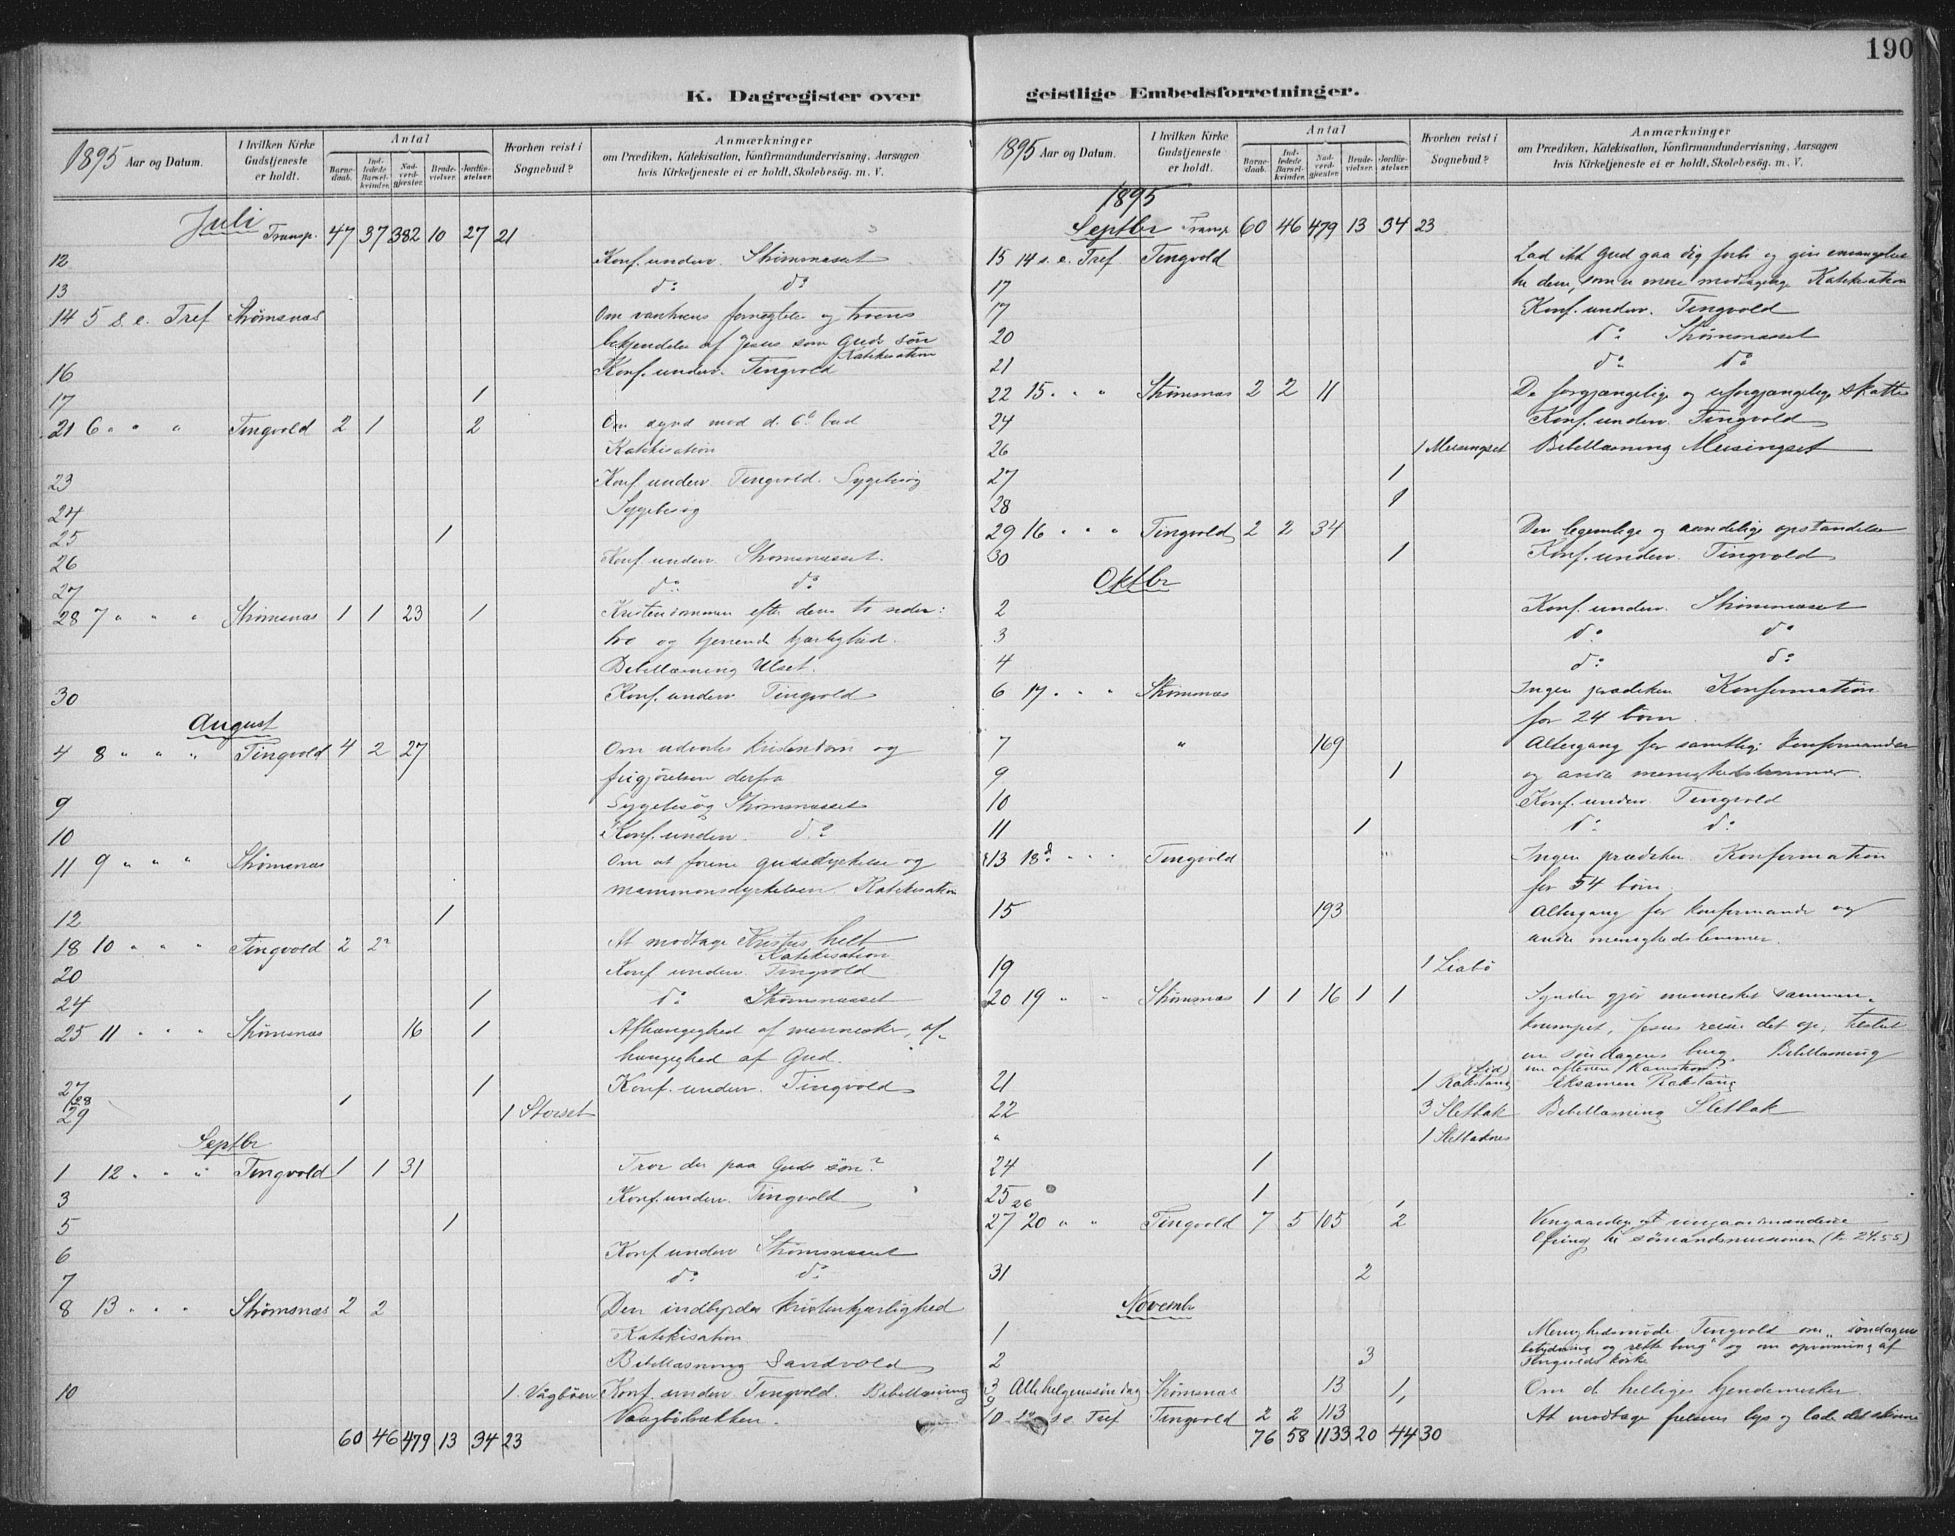 190
K. Dagregister over
1895 Aar og Datum.
I hvilken Kirke Gudstjeneste er holdt.
Antal
Barnedaab.
Indledede Barselkvinder.
Nadverdgjester.
Brudevielser.
Jordfæstelser.
Hvorhen reist i Sognebud?
Anmærkninger
om Prædiken, Katekisation, Konfirmandundervisning, Aarsagen
hvis Kirketjeneste ei er holdt, Skolebesøg. m. V.
Juli Transp. 47 37 382 10 27 21
12 Konf. underv. Strømsnæsset
13 do do
14 5 s. e. Tref Strømsnæs Om vantroens fornegtelse og troens
bekjendelse af Jesus som Guds søn
Katekisation
16 Konf. underv. Tingvold
17 1
21 6 " " " Tingvold 2 1 2 Om synd mod d. 6te bud
Katekisation
23 Konf. underv. Tingvold. Sygebesøg
24 Sygebesøg
25 1
26 Konf. underv. Strømsnæsset.
27 do do
28 7 " " " Strømsnæs 1 1 23 1 Kristendommen efter dens to sider:
tro og tjenende kjærlighed.
Bibellæsning Ulset.
30 Konf. underv Tingvold
August
4 8 " " " Tingvold 4 2 27 Om udvortes kristendom og
frigjørelsen derfra
9 Sygebesøg Strømsnæsset
10 Konf. underv. do
11 9 " " " Strømsnæs Om at forene gudsdyrkelse og
mammonsdyrkelsen. Katekisation
12 1
18 10 " " " Tingvold 2 2 At modtage Kristus helt
Katekisation
20 Konf. underv. Tingvold
24 1 do Strømsnæsset
25 11 " " " Strømsnæs 16 1 Afhængighed af mennesker, af-
hængighed af Gud.
27 1 Konf. underv. Tingvold
28 1
29 1 Storset
Septbr
1 12 " " " Tingvold 1 1 31 Tror du paa Guds søn?
3 Konf. underv. Tingvold
5 1
6 Konf. underv Strømsnæsset
7 do do
8 13 " " " Strømsnæs 2 2 Den indbyrdes kristenkjærlighed
Katekisation
Bibellæsning Sandvold
10 1 Vågbøen Konf. underv. Tingvold. Bibellæsning
Vaagbøbakken.
60 46 479 13 34 23
geistlige Embedsforretninger.
1895 Aar og Datum.
I hvilken Kirke Gudstjeneste er holdt.
Antal
Barnedaab.
Indledede Barselkvinder.
Nadverdgjester.
Brudevielser.
Jordfæstelser.
Hvorhen reist i Sognebud?
Anmærkninger
om Prædiken, Katekisation, Konfirmandundervisning, Aarsagen
hvis Kirketjeneste ei er holdt, Skolebesøg. m. V.
1895
Septbr Transp 60 46 479 13 34 23
15 14 s. e. Tref Tingvold Lad ikke Gud gaa dig forbi og give evangeliet
til dem, som er mere modtagelige Katekisation
17
17 Konf. underv. Tingvold
20 do Strømsnæsset
21 do do
22 15 " " Strømsnæs 2 2 11 De forgjængelige og uforgjængelige skatte
24 Konf. underv. Tingvold
26 1 Meisingset Bibellæsning Meisingset
27 1
28 1
29 16 " " " Tingvold 2 2 34 Den legemlige og aandelige opstandelse
30 1 Konf. underv. Tingvold
Oktbr
2 Konf. underv. Strømsnæsset
3 do do
4 do do
6 17 " " " Strømsnæs Ingen prædiken Konfirmation
for 24 børn.
7 " 169 Altergang for samtlige konfirmander
9 1 og andre menighedslemmer.
10 Konf. underv. Tingvold
11 1 do do
13 18de " " " Tingvold Ingen prædiken Konfirmation
for 54 børn.
15 193 Altergang for konfirmander og
andre menighedslemmer.
19 1 Liabø
20 19 " " Strømsnæs 1 1 16 1 1 Synden gjør mennesket sammen-
krumpet, Jesus reiser det op,
om søndagens brug. Bibellæsning
om aftenen
21 1 Rakstang Eksamen Rakstang
22 3 Sletbak Bibellæsning Sletbak
" 1 Sletbaknes
24 1
25 1
26 1
27 20 " " Tingvold 7 5 105 2 Vingaarden og vingaardsmændene
Ofring til sømandsmissionen (kr 24.55)
31 2
Novembr
1 Menighedsmøde Tingvold om "søndagens
betydning og rette brug" og om opvarmning af
2 3 Tingvolds kirke
3 Allehelgenssøndag Strømsnæs 13 1 Om de helliges kjendemerker
9 1
10 s. e. Tref Tingvold 2 2 113 At modtage frelsens lys og lade det skinne
76 58 1133 20 44 30